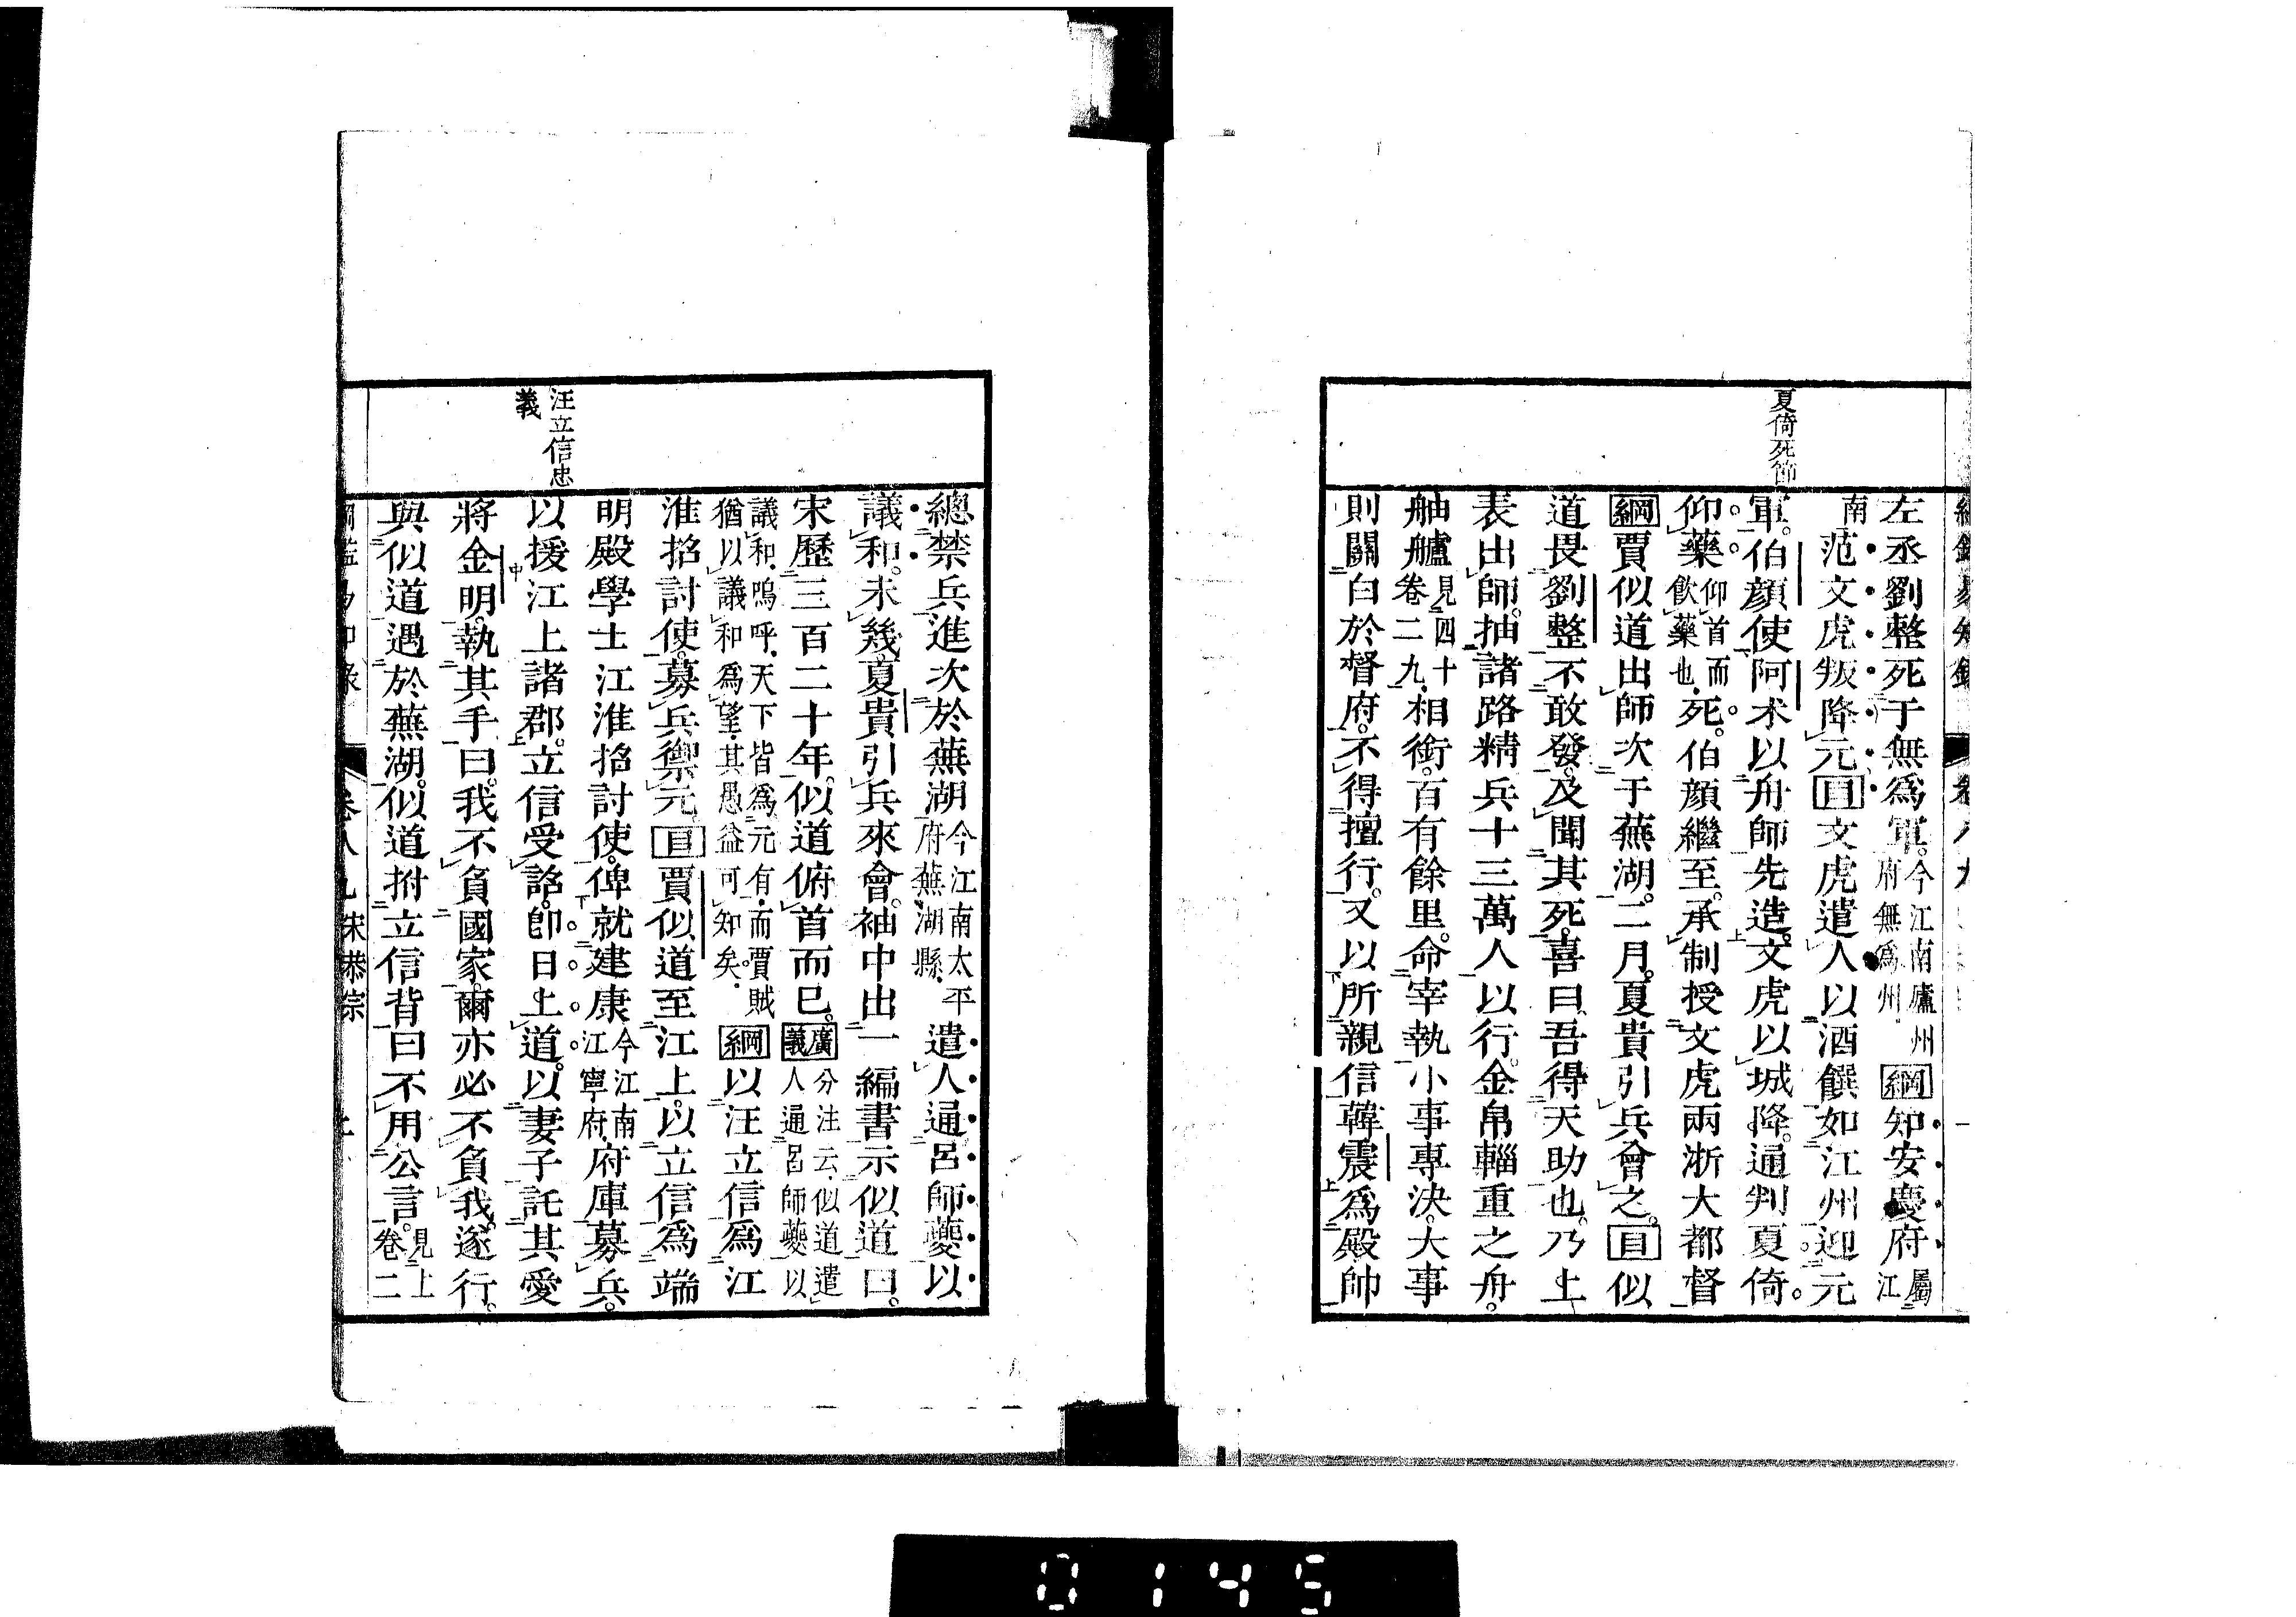 夏倚死節
左丞劉整死于無爲軍。今江南廬州府無爲州。綱知安慶府屬江
南范文虎叛降元目文虎遣人以酒饌如江州迎元
軍。伯顔使阿朮以舟師先造。文虎以城降。通判夏倚。
仰藥仰首而飲藥也。死。伯顔繼至。承制授文虎兩浙大都督
綱賈似道出師次于蕪湖。二月。夏貴引兵會之。目似
道畏劉整不敢發。及聞其死。喜曰吾得天助也。乃上
表出師。抽諸路精兵十三萬人以行。金帛輜重之舟。
舳艫見四十卷二九。相銜。百有餘里。命宰執小事專決。大事
則關白於督府。不得擅行。又以所親信韓震爲殿帥
總禁兵進次於蕪湖今江南太平府蕪湖縣。遣人通呂師夔以
議和。未幾。夏貴引兵來會。袖中出一編書示似道曰。
宋歷三百二十年。似道俯首而已。廣義分注云。似道遣人通呂師夔以
議和。嗚呼。天下皆爲元有。而賈賊猶以議和爲望。其愚益可知矣。綱以汪立信爲江
淮招討使。募兵禦元目賈似道至江上。以立信爲端
明殿學士江淮招討使。俾就建康今江南江寧府。府庫募兵。
以援江上諸郡。立信受詔。卽日上道。以妻子託其愛
將金明。執其手曰。我不負國家。爾亦必不負我。遂行。
與似道遇於蕪湖。似道拊立信背曰不用公言。見上卷二
汪立信忠
義
卷八九 宋恭宗
0145